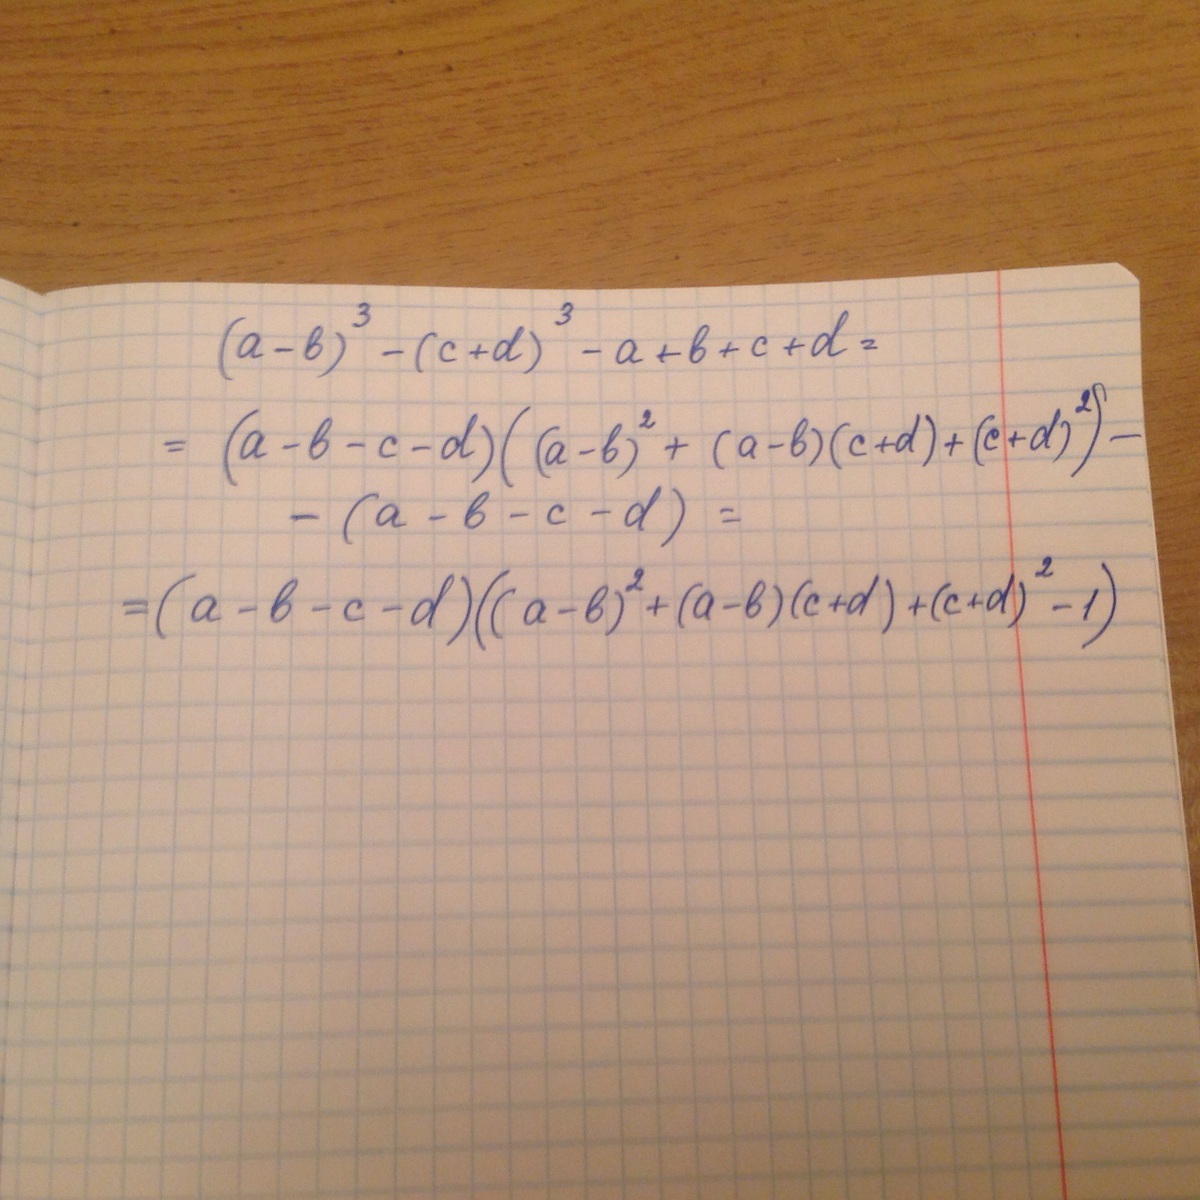 (a-b)³ - (c+d)³ - a+b+c+d =
= (a-b-c-d)((a-b)² + (a-b)(c+d)+(c+d)²) -
- (a-b-c-d) =
=(a-b-c-d)((a-b)²+(a-b)(c+d)+(c+d)²-1)